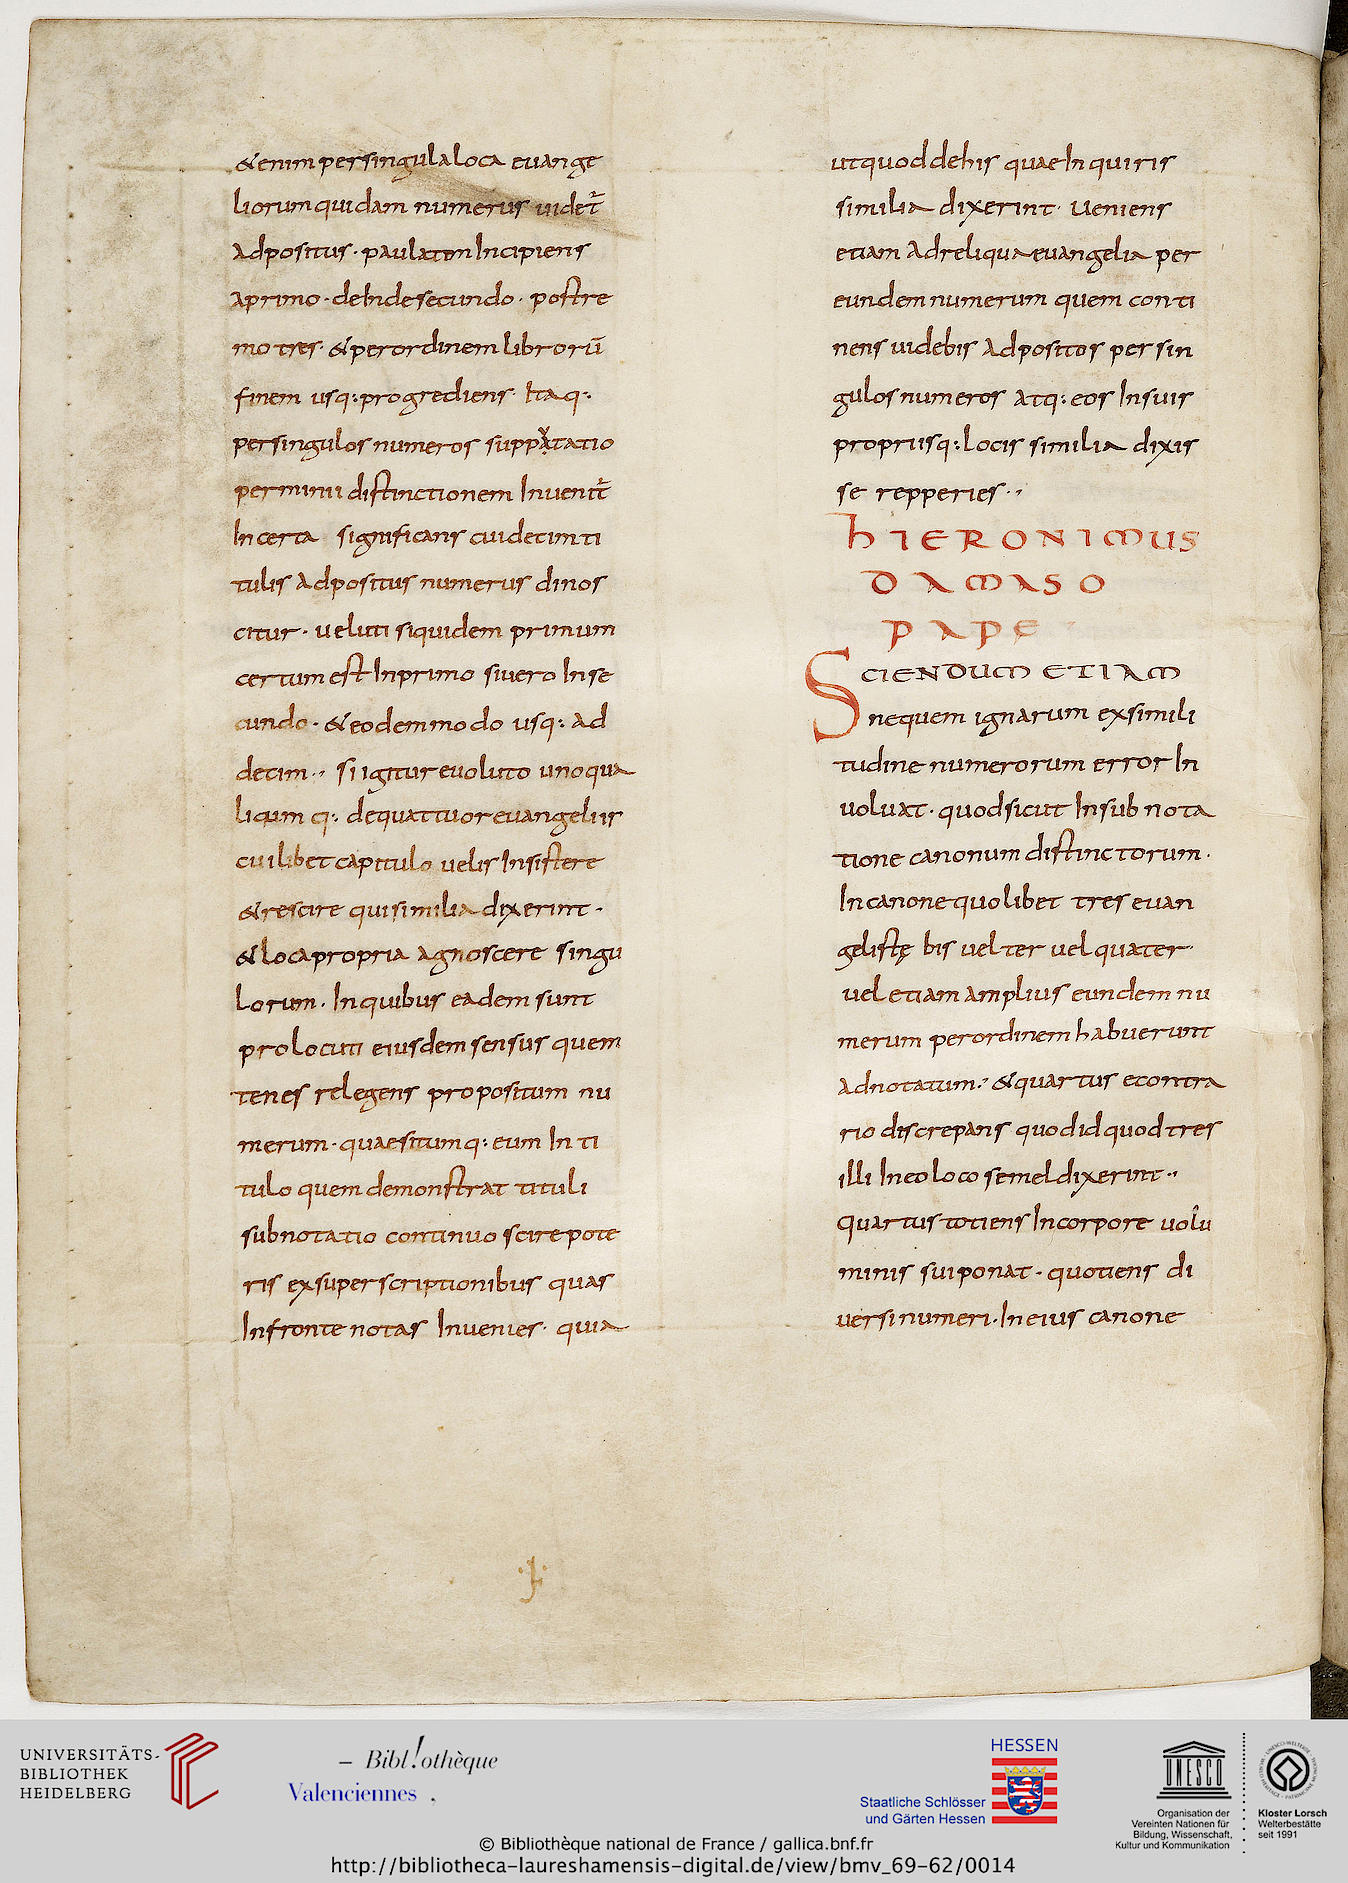 &enim per singula loca euange
liorum quidam numerus uidet̄
adpositus · paulatim Incipiens
a primo · deInde secundo · postre
mo tres · & per ordinem librorū
finem usq: progrediens · Itaq:
per singulos numeros suppatatio
per minii distinctionem Inuenit̄
In certa significans cui decim ti
tulis adpositus numerus dinos
citur · ueluti siquidem primum
certum est In primo si uero In se
cundo · & eodem modo usq: ad
decim ·, si igitur euoluto uno qua
licum q: de quattuor euangeliis
cuilibet capitulo uelis Insistere
& rescire qui similia dixerint ·
& loca propria agnoscere singu
lorum · In quibus eadem sunt
prolocuti eiusdem sensus quem
tenes relegens propositum nu
merum · quaesitumq: eum In ti
tulo quem demonstrat tituli
subnotatio continuo scire pote
ris ex superscriptionibus quas
In fronte notas Inuenies · quia
ut quod de his quae Inquiris
similia dixerint · ueniens
etiam ad reliqua euangelia per
eundem numerum quem conti
nens uidebis adpositos per sin
gulos numeros atq: eos In suis
propriisq: locis similia dixis
se repperies ·,
hIERONIMUS
DAMASO
PAPE
SCIENDUM ETIAM
nequem ignarum ex simili
tudine numerorum error In
uoluat · quod sicut In subnota
tione canonum distinctorum ·
In canone quolibet tres euan
gelistę bis uel ter uel quater ·
uel etiam amplius eundem nu
merum per ordinem habuerunt
adnotatum ·, & quartus econtra
rio discrepans quod id quod tres
illi In eo loco semel dixerint ·,
quartus totiens In corpore uolu
minis sui ponat · quotiens di
uersi numeri · In eius canone
UNIVERSITÄTS-
BIBLIOTHEK
HEIDELBERG
– Bibl!othèque
Valenciennes ,
HESSEN
Staatliche Schlösser
und Gärten Hessen
UNESCO
Organisation der
Vereinten Nationen für
Bildung, Wissenschaft,
Kultur und Kommunikation
Kloster Lorsch
Welterbestätte
seit 1991
© Bibliothèque national de France / gallica.bnf.fr
http://bibliotheca-laureshamensis-digital.de/view/bmv_69-62/0014